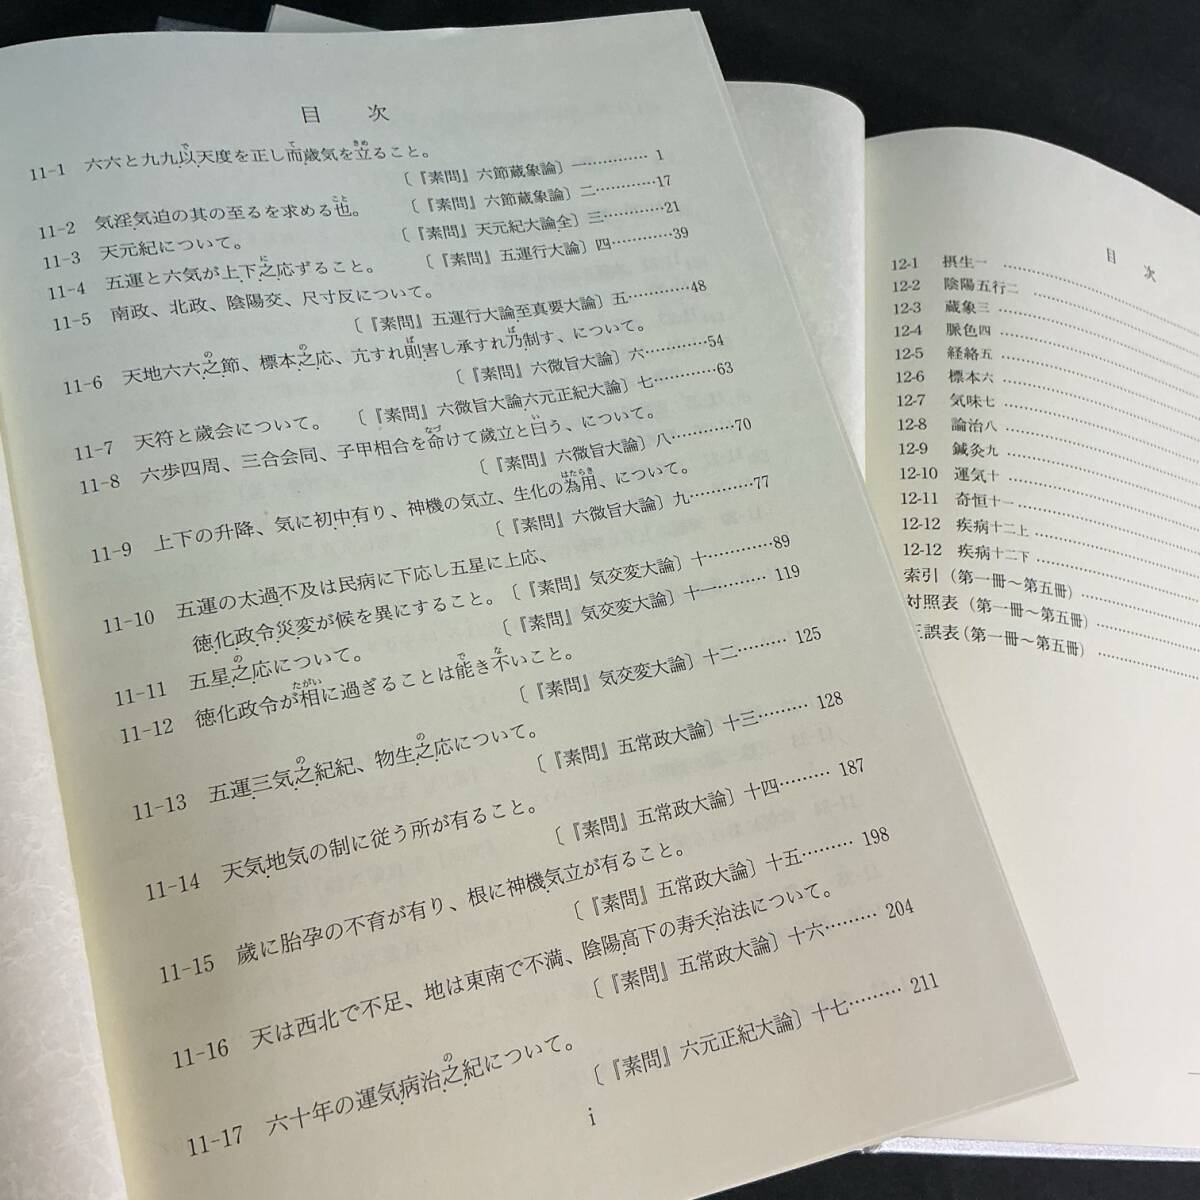 目　次
11-1　六六と九九以天度を正し而歳気を立ること。
〔『素問』六節蔵象論〕一………… 1
11-2　気淫気迫の其の至るを求める也。　〔『素問』六節蔵象論〕二…………17
11-3　天元紀について。　〔『素問』天元紀大論全〕三…………21
11-4　五運と六気が上下之応ずること。　〔『素問』五運行大論〕四…………39
11-5　南政、北政、陰陽交、尺寸反について。
〔『素問』五運行大論至真要大論〕五…………48
11-6　天地六六之節、標本之応、亢すれ則害し承すれ乃制す、について。
〔『素問』六微旨大論〕六…………54
11-7　天符と歳会について。　〔『素問』六微旨大論六元正紀大論〕七…………63
11-8　六歩四周、三合会同、子甲相合を命けて歳立と曰う、について。
〔『素問』六微旨大論〕八…………70
11-9　上下の升降、気に初中有り、神機の気立、生化の為用、について。
〔『素問』六微旨大論〕九…………77
11-10　五運の太過不及は民病に下応し五星に上応、
徳化政令災変が候を異にすること。〔『素問』気交変大論〕十…………89
11-11　五星之応について。　〔『素問』気交変大論〕十一………119
11-12　徳化政令が相に過ぎることは能き不いこと。
〔『素問』気交変大論〕十二………125
11-13　五運三気之紀紀、物生之応について。
〔『素問』五常政大論〕十三………128
11-14　天気地気の制に従う所が有ること。
〔『素問』五常政大論〕十四………187
11-15　歳に胎孕の不育が有り、根に神機気立が有ること。
〔『素問』五常政大論〕十五………198
11-16　天は西北で不足、地は東南で不満、陰陽高下の寿夭治法について。
〔『素問』五常政大論〕十六………204
11-17　六十年の運気病治之紀について。
〔『素問』六元正紀大論〕十七………211
i
目　次
12-1　摂生一
12-2　陰陽五行二
12-3　蔵象三
12-4　脈色四
12-5　経絡五
12-6　標本六
12-7　気味七
12-8　論治八
12-9　鍼灸九
12-10　運気十
12-11　奇恒十一
12-12　疾病十二上
12-12　疾病十二下
索引（第一冊～第五冊）
対照表（第一冊～第五冊）
正誤表（第一冊～第五冊）